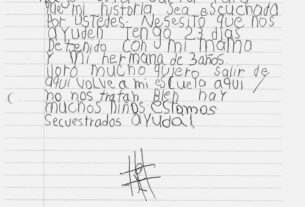 mi historia sea escuchada
Por Ustedes. Nesesito que nos
ayuden tengo 23 dias
Detenido con mi mama
y mi hermana de 3 años.
lloro mucho quiero salir de
aqui volve a mi escuela aqui
no nos tratan Bien hay
muchos niños estamos
Secuestrados ayuda!